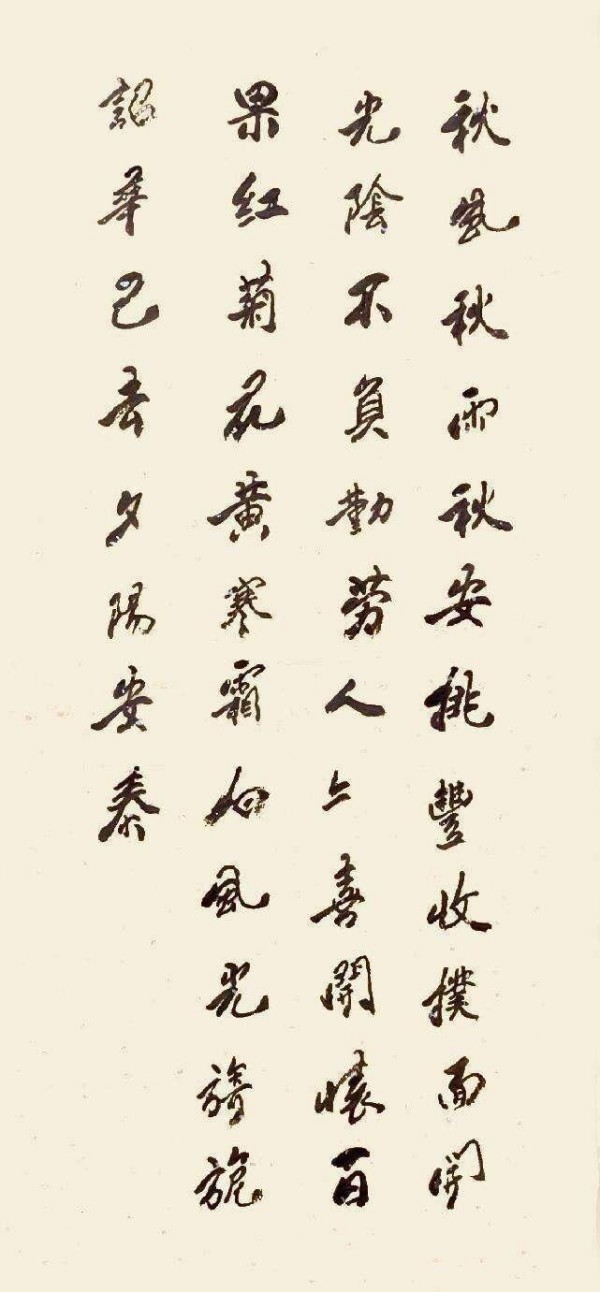 秋風秋雨秋安挑豐收撲面開
光陰不負勤勞人々喜開懷百
果紅菊花黃寒霜風光旖旎
詔華已去夕陽安泰